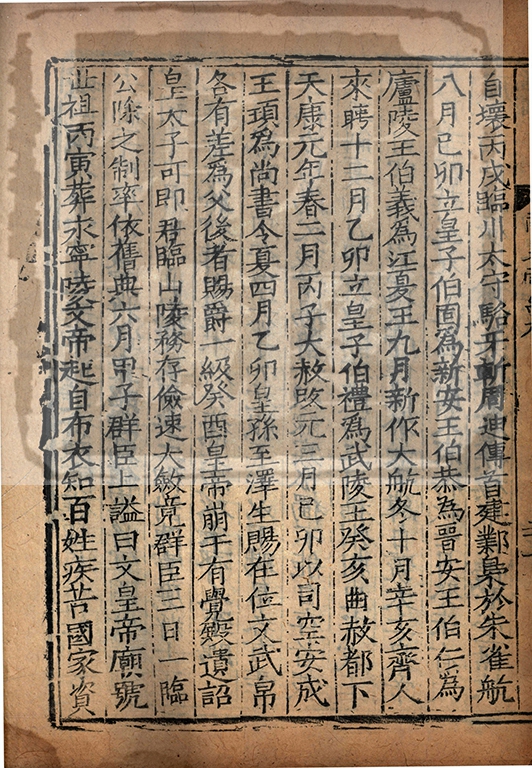 自壞丙戌臨川太守駱牙斬周迪傳首建鄴梟於朱雀航
八月己卯立皇子伯固為新安王伯恭為晉安王伯仁為
廬陵王伯義為江夏王九月新作大航冬十月辛亥齊人
來聘十二月乙卯立皇子伯禮為武陵王癸亥曲赦都下
天康元年春二月丙子大赦改元三月己卯以司空安成
王頊為尚書令夏四月乙卯皇孫至澤生賜在位文武帛
各有差為父後者賜爵一級癸酉皇帝崩于有覺殿遺詔
皇太子可即君臨山陵務存儉速大斂竟群臣三日一臨
公除之制率依舊典六月甲子群臣上謚曰文皇帝廟號
世祖丙寅葬永寧陵文帝起自布衣知百姓疾苦國家資